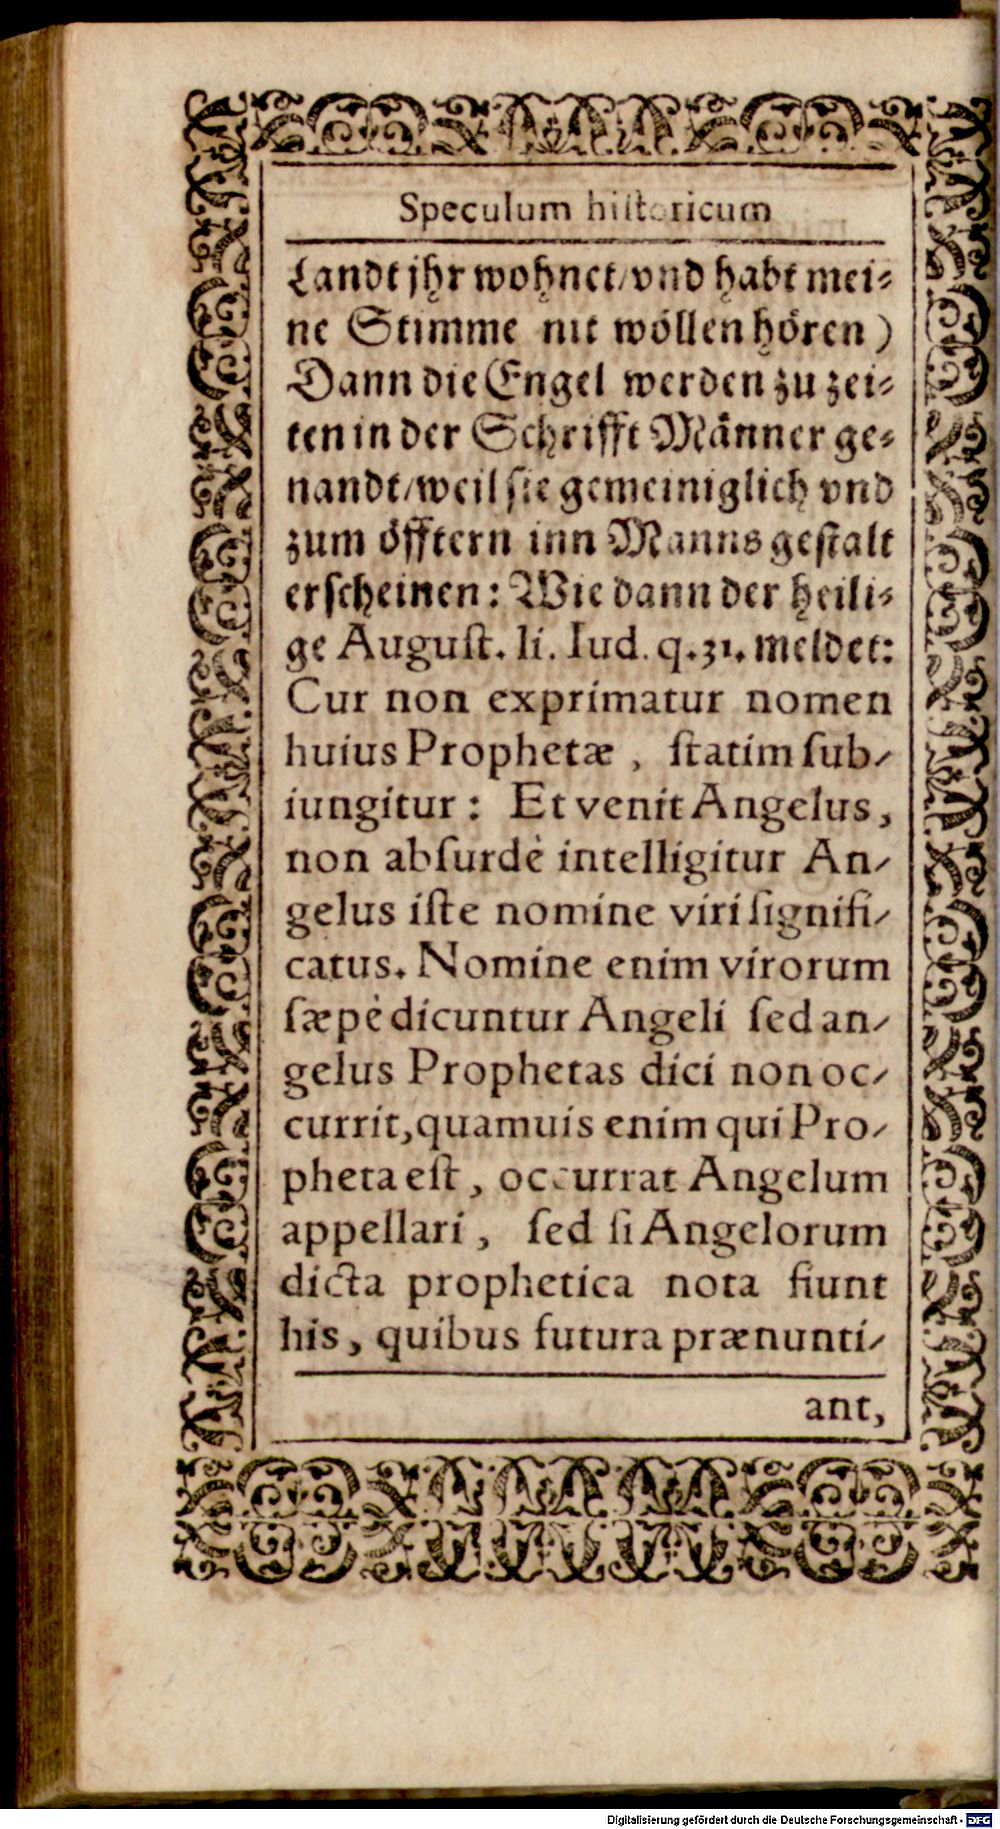 Speculum historicum
Landt jhr wohnet/vnd habt mei⸗
ne Stimme nit wöllen hören)
Dann die Engel werden zu zei⸗
ten in der Schrifft Männer ge⸗
nandt/weil sie gemeiniglich vnd
zum öfftern inn Manns gestalt
erscheinen: Wie dann der heili⸗
ge Auguſt. li. Iud. q.31. meldet:
Cur non exprimatur nomen
huius Prophetæ, ſtatim ſub-
iungitur: Et venit Angelus,
non abſurdè intelligitur An-
gelus iſte nomine viri ſignifi-
catus. Nomine enim virorum
ſæpè dicuntur Angeli ſed an-
gelus Prophetas dici non oc-
currit, quamuis enim qui Pro-
pheta eſt, occurrat Angelum
appellari, ſed ſi Angelorum
dicta prophetica nota fiunt
his, quibus futura prænunti-
ant,
Digitalisierung gefördert durch die Deutsche Forschungsgemeinschaft - DFG